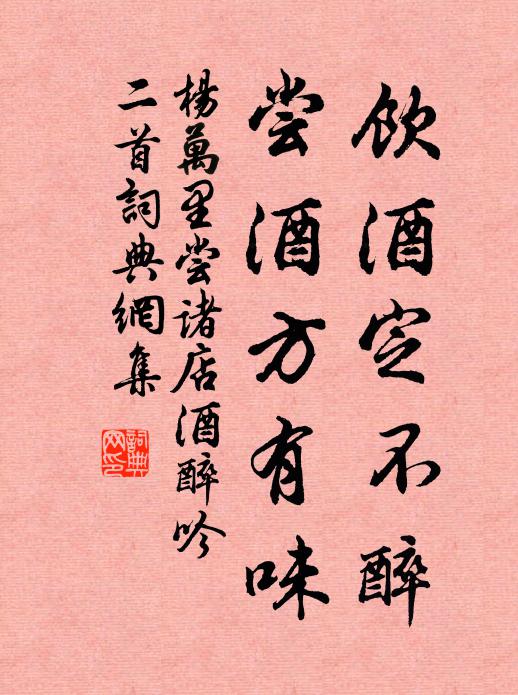 飲酒定不醉
尝酒方有味
楊萬里尝诸店酒醉吟
二首詞典網集
詞典
网印